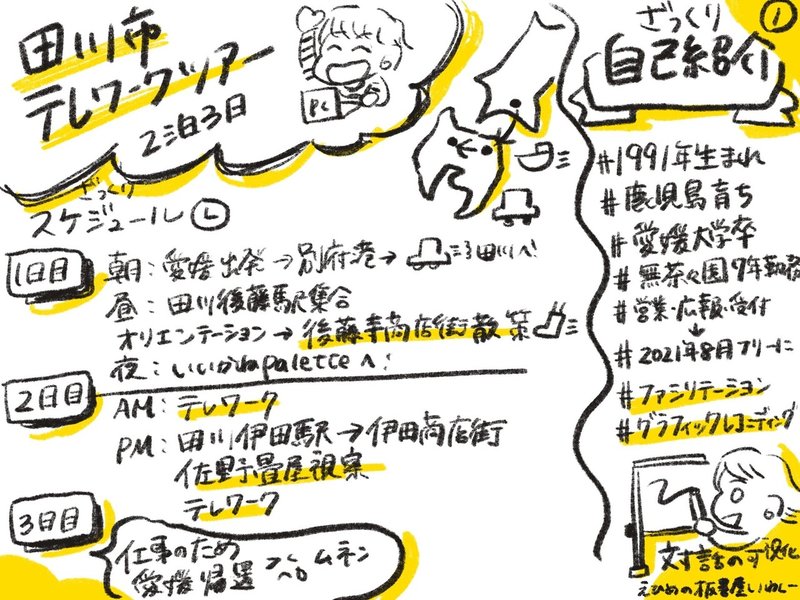 田川市
テレワークツアー
2泊3日
PC
ざっくり
スケジュール
1日目
朝:愛媛出発→別府港→田川へ!
昼:田川後藤駅集合
オリエンテーション→後藤寺商店街散策
夜:いいかねpaletteへ!
2日目
AM:テレワーク
PM:田川伊田駅→伊田商店街
佐野畳屋視察
テレワーク
3日目
仕事のため
愛媛帰還
ムネン
①
ざっくり
自己紹介
#1991年生まれ
#鹿児島育ち
#愛媛大学卒
#無茶々園7年勤務
#営業・広報・受付
↓
#2021年8月フリーに
#ファシリテーション
#グラフィックレコーディング
対話の可視化
えひめの板書屋いわしー